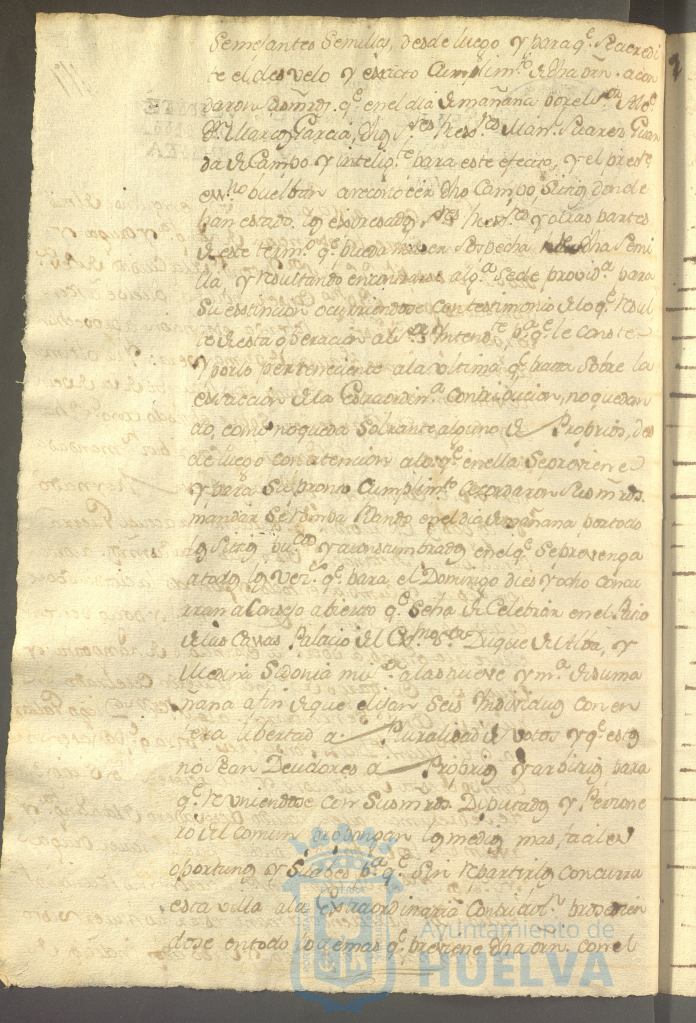 Semejantes Semillas, desde luego y para q.e Se acredi
te el desvelo y exacto Cumplim.to de dha orn. acor
daron Sus mrds. q.e en el dia de mañana por el S.or Alc.e
D.n Marcos Garcia, dhos S.res Suarez Guar
da de Campo y intelig.te para este efecto, y el pres.te
ess.no buelban a reconocer dho Campo, Sitios donde
han estado los expresados y otras partes
de este term.no q.e pueda haver Sospecha dha Semi
lla y resultando encontrarse alg.a Se de provid.a para
Su extincion ocurriendose con testimonio de lo q.e resul
te de esta operacion al S.or Intend.te p.a q.e le conste
Y por lo perteneciente a la ultima q.e trata Sobre la
exaccion de la Extraordin.a Contribucion, no quedan
do, como no queda Sobrante alguno de Proprios, des
de luego con atencion a lo q.e en ella Se previene
y para Su pronto Cumplim.to acordaron Sus mrds.
mandar Se expida Bando en el dia de mañana, por todos
los Sitios pu.cos y acostumbrados en el q.e Se prevenga
a todos los vez.os q.e para el Domingo dies y ocho concu
rran a Consejo abierto q.e Se ha de Celebrar en el Patio
de las Casas Palacio del Ex.mo S.or Duque de Alba, y
Medina Sidonia mi S.or a las nueve y m.a de Su ma
ñana a fin de que elijan Seis Individuos con en
tera libertad a Pluralidad de votos y q.e estos
no Sean Deudores a Proprios y arbitrios para
q.e reuniendose con Sus mrds. Diputados y Perzone
ro del Comun propongan los medios mas faciles
oportunos y Suabes p.a q.e Sin repartirlos concurra
esta villa a la Extraordinaria Contribuz.n procedien
dose en todo lo demas q.e previene dha orn. con el
Ayuntamiento de
HUELVA